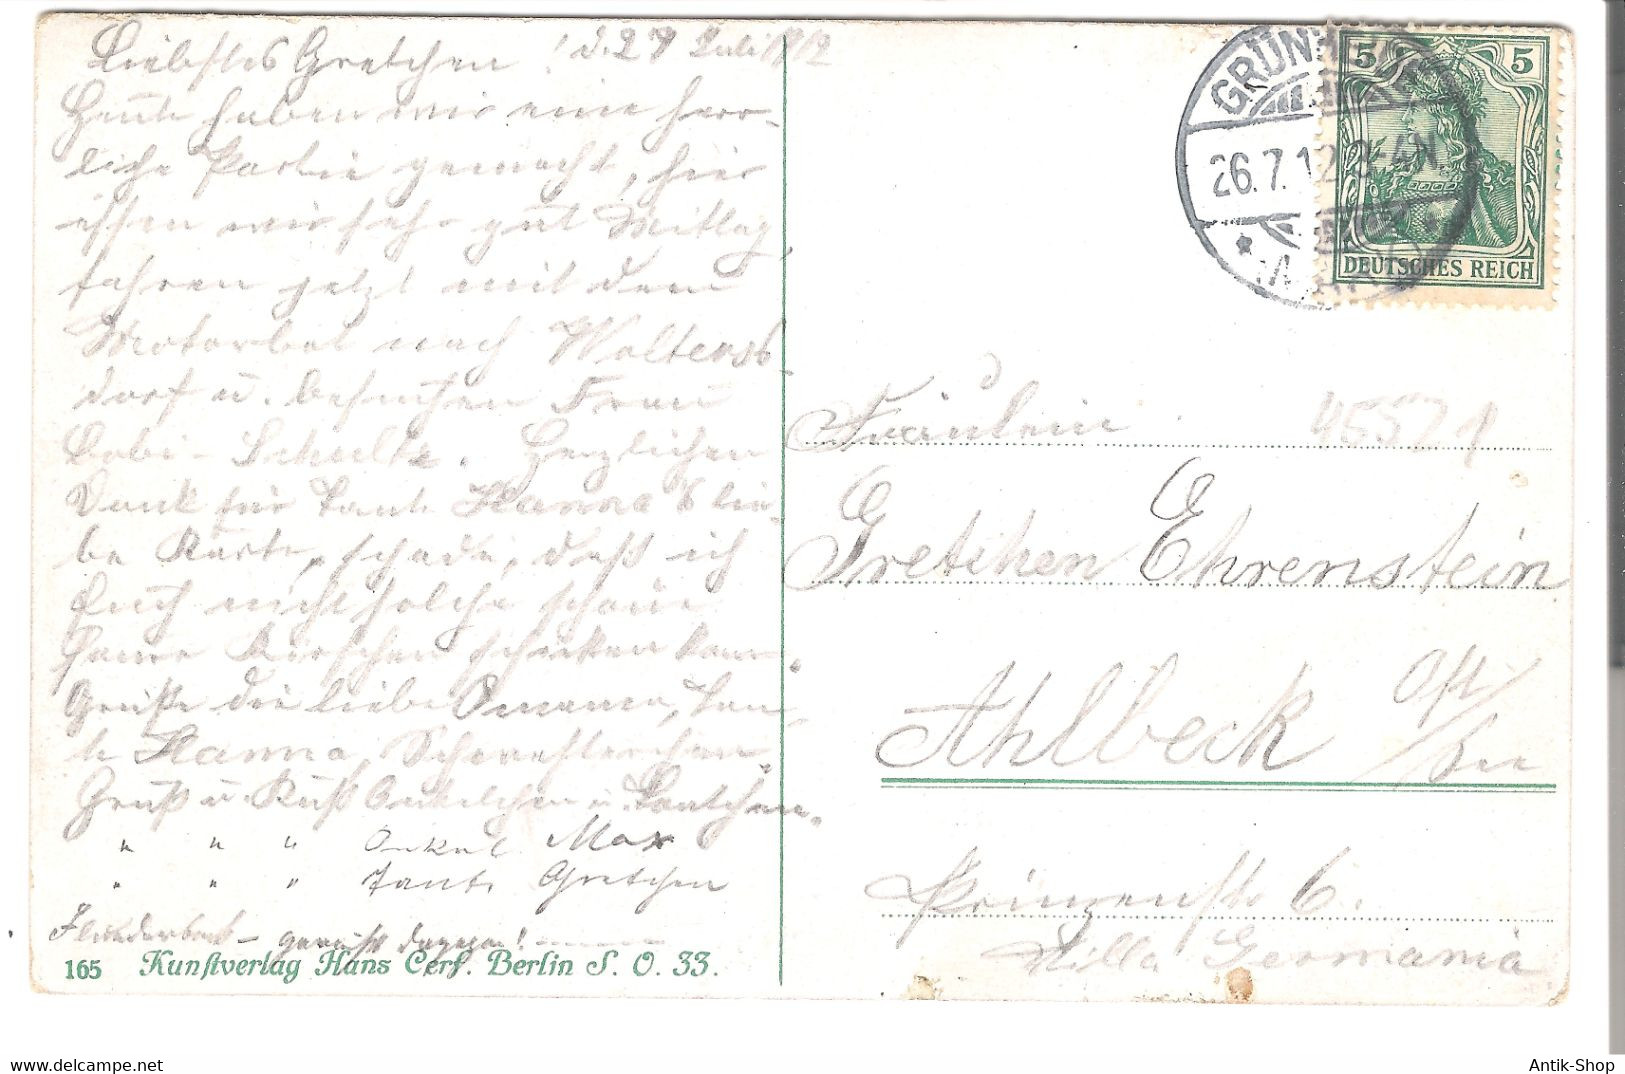 Liebstes Gretchen! d. 27 Juli 1912
Heute haben wir eine herr-
liche Partie gemacht, hier
essen wir sehr gut Mittag,
fahren jetzt mit dem
Motorboot nach Woltersb
dorf u. besuchen Frau
Schultz. Herzlichen
Dank für Tante Hanna's lie-
be Karte, schade, daß ich
Euch nicht solche schöne
Kirschen schicken kann.
Grüße die liebe Omama, Tan-
te Hanna, Schwesterchen.
Gruß u. Kuß Onkelchen u. Tantchen.
" " " Onkel Max
" " " Tante Gretchen
165 Kunstverlag Hans Cerf. Berlin S. O. 33.
GRÜN
26.7.12
5 5
DEUTSCHES REICH
45571
Fräulein
Gretchen Ehrenstein
Ahlbeck Ost/
See
Prinzenstr 6.
Villa Germania
Antik-Shop